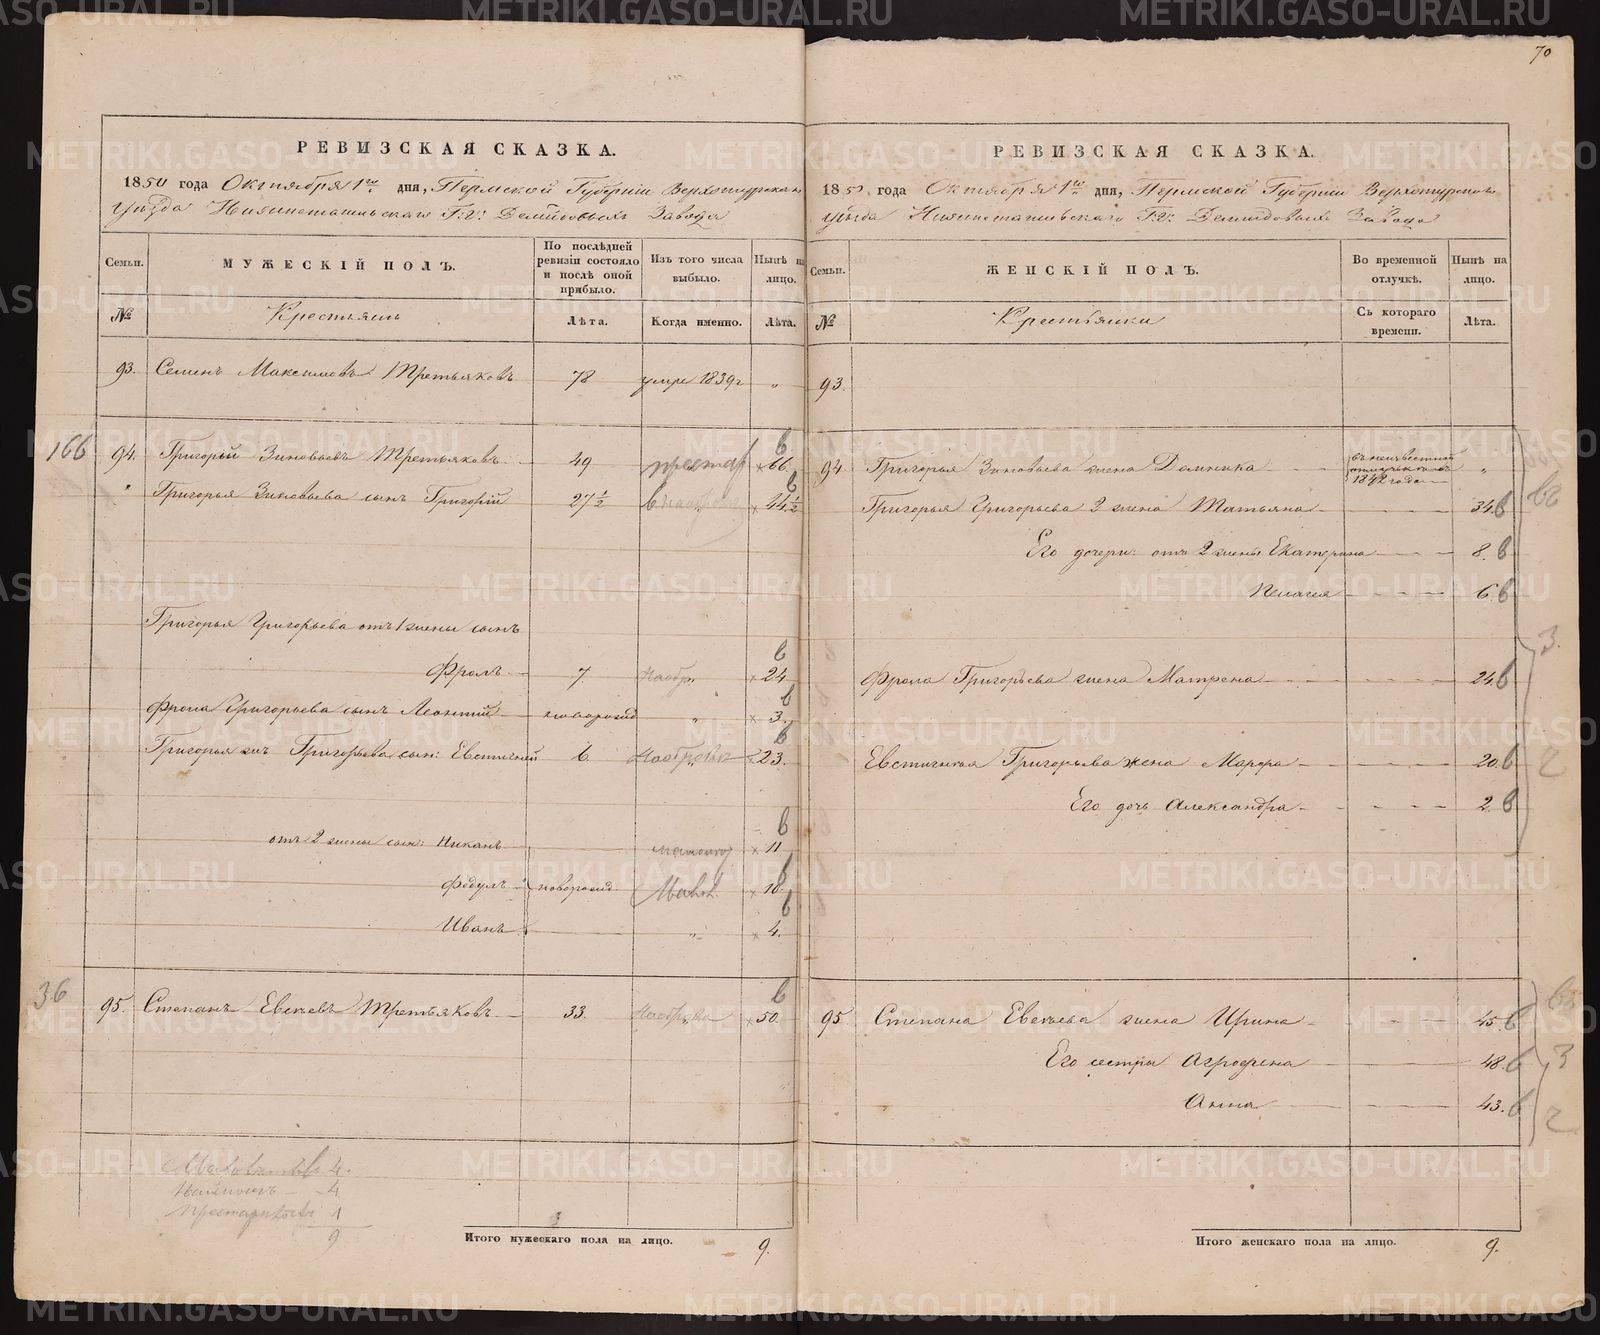 70
РЕВИЗСКАЯ СКАЗКА.
1850 года Октября 1го дня, Пермской Губернии Верхотурскаго
уѣзда Нижнетагильскаго Г.г. Демидовыхъ Завода
Семьи. МУЖЕСКІЙ ПОЛЪ. По послѣдней ревизіи состояло и послѣ оной прибыло. Изъ того числа выбыло. Нынѣ на лицо.
№ Крестьянъ Лѣта. Когда именно. Лѣта.
93. Семенъ Максимовъ Третьяковъ 78 умре 1839 г „
166 94. Григорій Зиновьевъ Третьяковъ 49 престар 66 в
Григорья Зиновьева сынъ Григорій 27½ 44½ в
Григорья Григорьева отъ 1 жены сынъ
Фролъ 7 24 в
Фрола Григорьева сынъ Леонтій новорожд „ 3 в
Григорья жъ Григорьева сын: Евстигней 6 23 в
отъ 2 жены сын: Никанъ 11 в
Федулъ новорожд 10 в
Иванъ „ 4 в
36 95. Степанъ Евсѣевъ Третьяковъ 33 50 в
4
4
1
9
Итого мужескаго пола на лицо. 9.
РЕВИЗСКАЯ СКАЗКА.
1850 года Октября 1го дня, Пермской Губерніи Верхотурскаго
уѣзда Нижнетагильскаго Г.г. Демидовыхъ Завода
Семьи. ЖЕНСКІЙ ПОЛЪ. Во временной отлучкѣ. Нынѣ на лицо.
№ Крестьянки Съ котораго времени. Лѣта.
93.
94. Григорья Зиновьева жена Домника въ неизвестной отлучкѣ съ 1842 года „
Григорья Григорьева 2 жена Татьяна 34 в
Его дочери отъ 2 жены Екатерина 8 в
Пелагея 6 в
3
Фрола Григорьева жена Матрена 24 в
Евстигнея Григорьева жена Марфа 20 в
2
Его дочь Александра 2 в
95. Степана Евсѣева жена Ирина 45 в
Его сестры Агрофена 48 в
3
Анна 43 в
2
Итого женскаго пола на лицо. 9.
METRIKI.GASO-URAL.RU